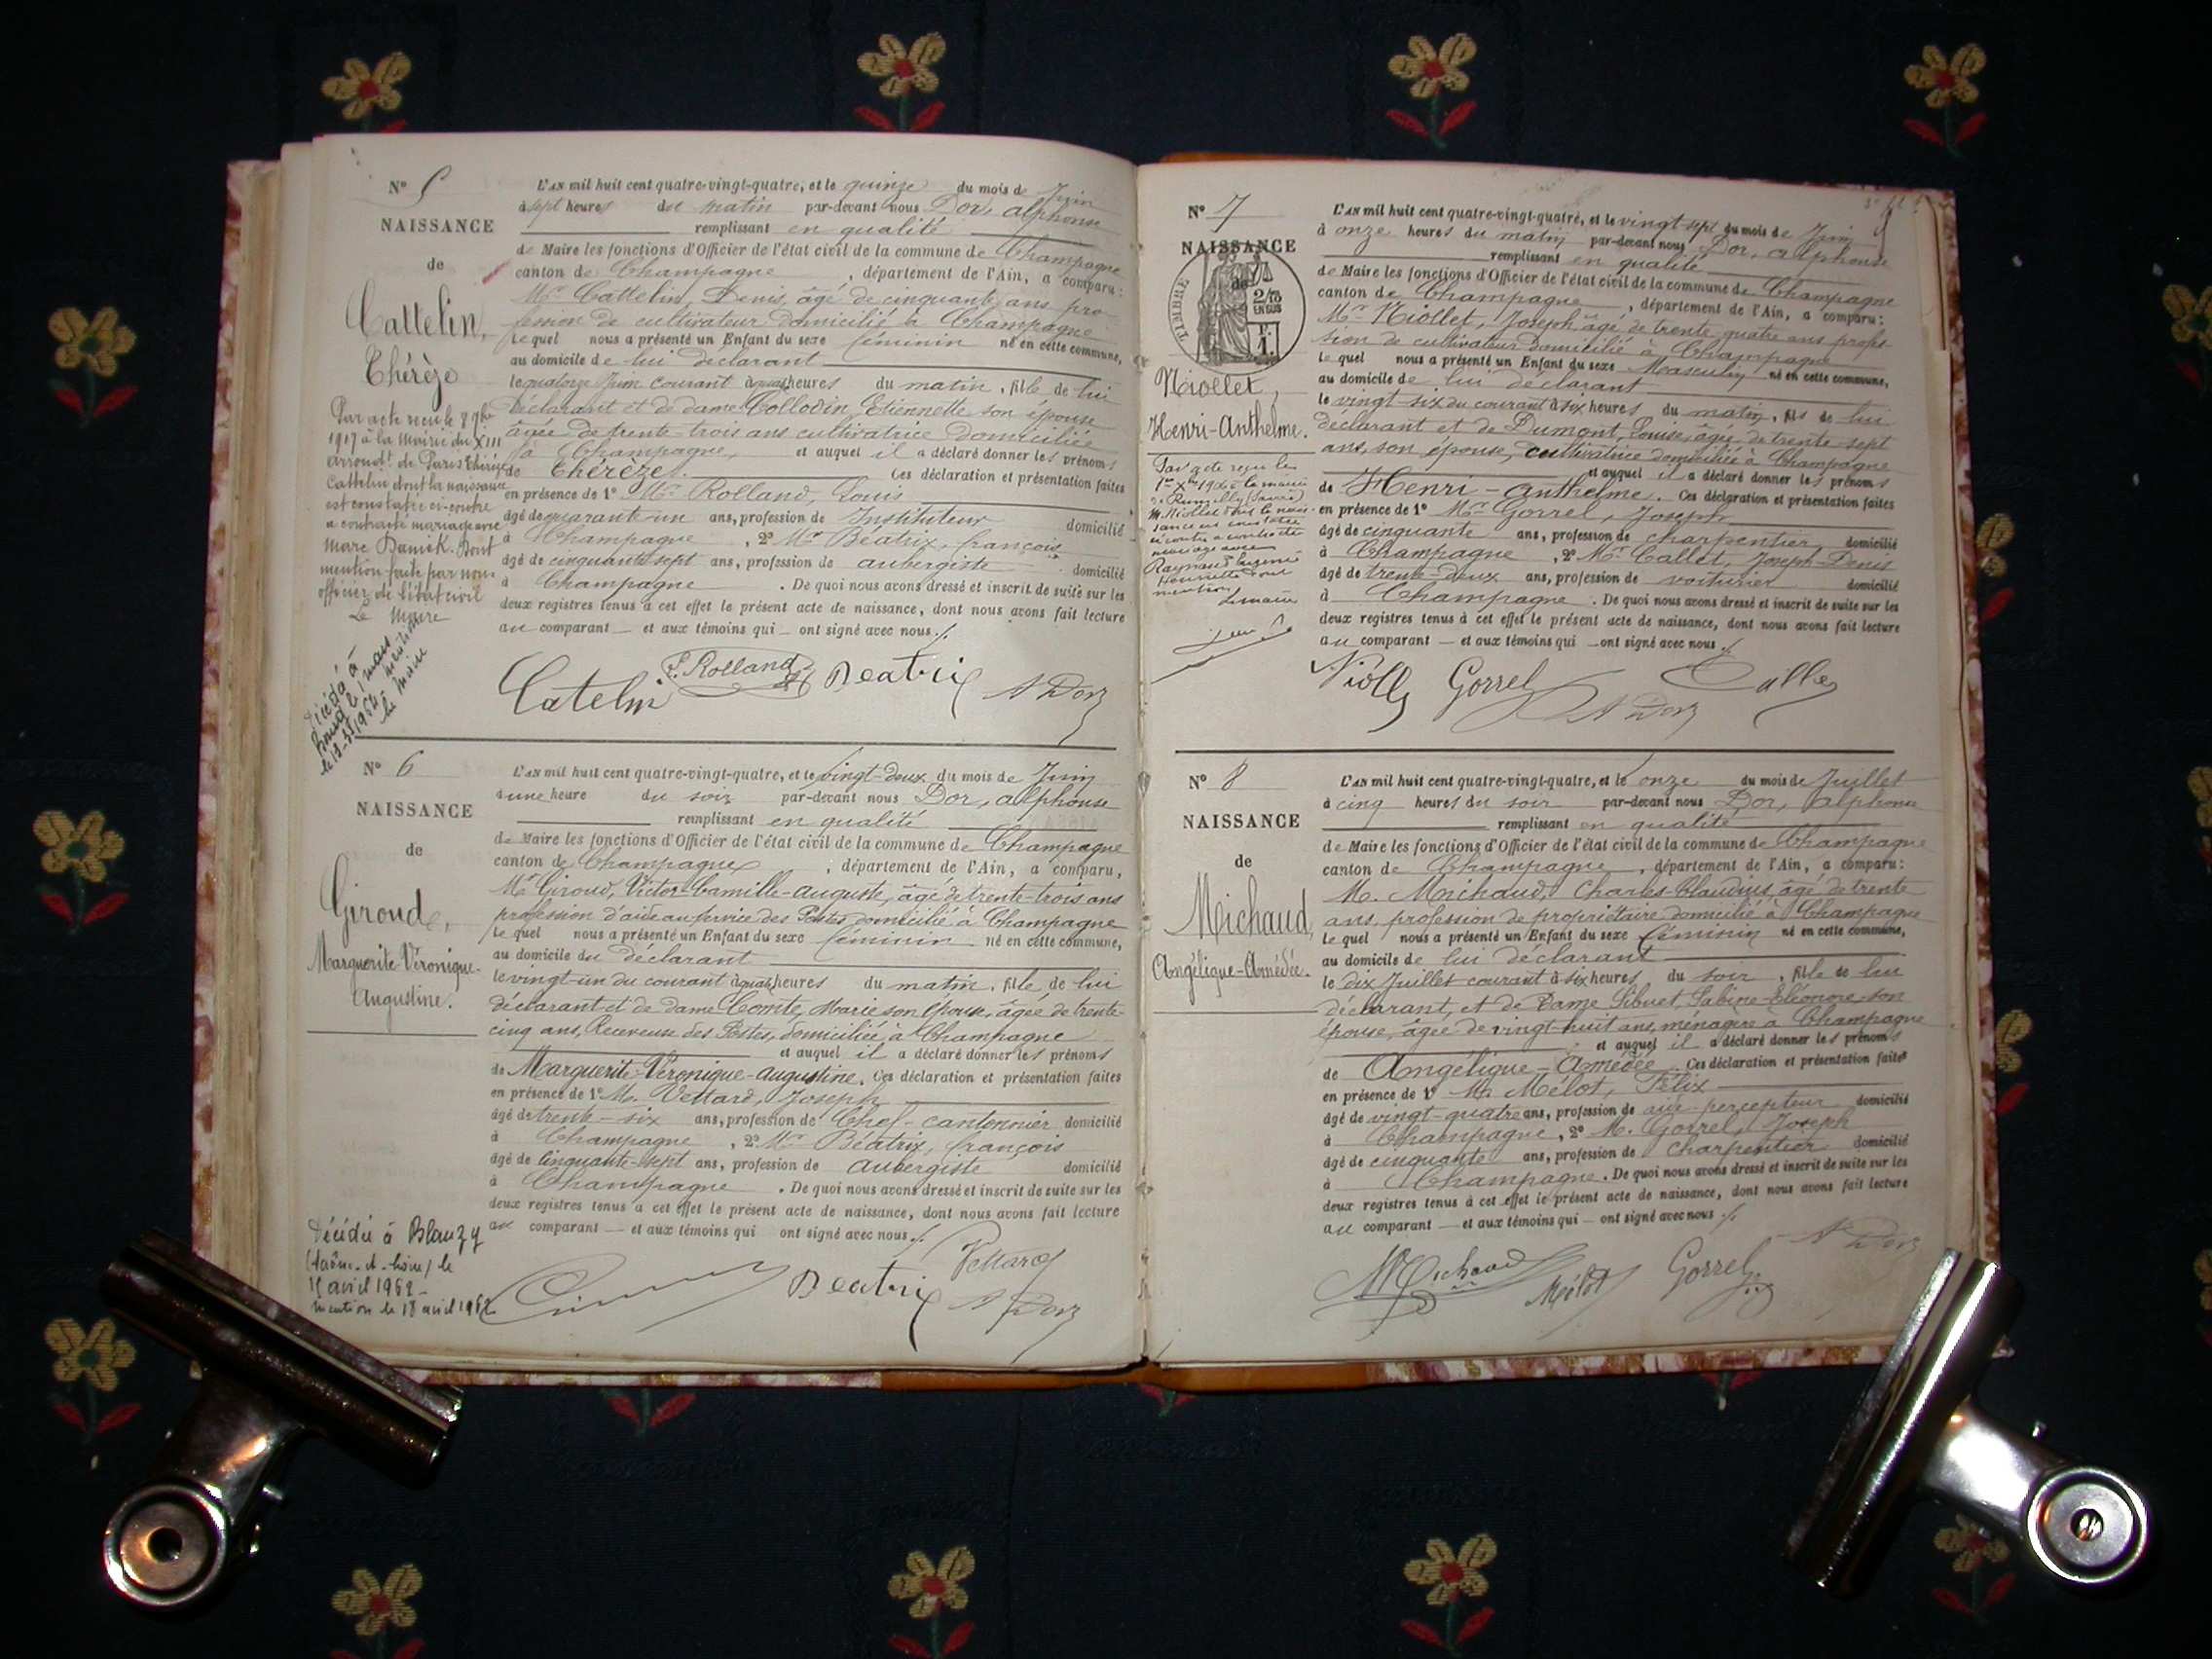 N° 5
NAISSANCE
de
Cattelin,
Thérèze
Par acte reçu le 8 9bre
1917 à la Mairie du XIII
arrondt. de Paris Thérèze
Cattelin dont la naissance
est constatée ci-contre
a contracté mariage avec
Marc Dont
mention faite par nous
officier de l'état civil
Le Maire
Décédé à
le 1 mars
mention
le maire
L'AN mil huit cent quatre-vingt-quatre, et le quinze du mois de Juin
à sept heures du matin par-devant nous Dor, alphonse
remplissant en qualité
de Maire les fonctions d'Officier de l'état civil de la commune de Champagne
canton de Champagne, département de l'Ain, a comparu:
Mr Cattelin, Denis, âgé de cinquante ans pro-
fession de cultivateur domicilié à Champagne
le quel nous a présenté un Enfant du sexe féminin né en cette commune,
au domicile de lui déclarant
le quatorze Juin courant à heures du matin, fille de lui
Déclarant et de dame Collodin, Etiennette son épouse
âgée de trente-trois ans cultivatrice domiciliée
à Champagne, et auquel il a déclaré donner les prénoms
de Thérèze. Ces déclaration et présentation faites
en présence de 1° Mr Rolland, Louis
âgé de quarante-un ans, profession de Instituteur domicilié
à Champagne, 2° Mr Béatrix, françois
âgé de cinquante sept ans, profession de aubergiste domicilié
à Champagne. De quoi nous avons dressé et inscrit de suite sur les
deux registres tenus à cet effet le présent acte de naissance, dont nous avons fait lecture
au comparant — et aux témoins qui — ont signé avec nous./.
Catelin L. Rolland Beatrix A Dor
N° 6
NAISSANCE
de
Giroud,
Marguerite-Véronique-
Augustine.
Décédée à Blanzy
(Saône-et-Loire) le
15 avril 1962 -
mention le 18 avril 1962
L'AN mil huit cent quatre-vingt-quatre, et le vingt-deux du mois de Juin
à une heure du soir par-devant nous Dor, alphonse
remplissant en qualité
de Maire les fonctions d'Officier de l'état civil de la commune de Champagne
canton de Champagne, département de l'Ain, a comparu,
Mr Giroud, Victor-Camille-auguste, âgé de trente-trois ans
profession d'aide au service des Postes, domicilié à Champagne
le quel nous a présenté un Enfant du sexe féminin né en cette commune,
au domicile du déclarant
le vingt-un du courant à heures du matin, fille de lui
déclarant et de dame Comte, Marie son épouse, âgée de trente-
cinq ans, Receveuse des Postes, domiciliée à Champagne
et auquel il a déclaré donner les prénoms
de Marguerite-Véronique-augustine. Ces déclaration et présentation faites
en présence de 1° M. Vettard, Joseph
âgé de trente-six ans, profession de Chef-cantonnier domicilié
à Champagne, 2° Mr Béatrix, françois
âgé de cinquante-sept ans, profession de aubergiste domicilié
à Champagne. De quoi nous avons dressé et inscrit de suite sur les
deux registres tenus à cet effet le présent acte de naissance, dont nous avons fait lecture
au comparant — et aux témoins qui ont signé avec nous./.
Beatrix Vettard A Dor
N° 7
NAISSANCE
de
TIMBRE
2/10
EN SUS
Niollet,
Henri-Anthelme.
Par acte reçu le
1er Xbre à la mairie
de Rumilly (Savoie)
M. Niollet dont la nais-
sance est constatée
ci-contre a contracté
mariage avec
Raynaud Eugénie
Henriette Dont
mention
Le maire
L'AN mil huit cent quatre-vingt-quatre, et le vingt sept du mois de Juin
à onze heures du matin par-devant nous Dor, alphonse
remplissant en qualité
de Maire les fonctions d'Officier de l'état civil de la commune de Champagne
canton de Champagne, département de l'Ain, a comparu:
Mr Niollet, Joseph âgé de trente quatre ans profes-
sion de cultivateur domicilié à Champagne
le quel nous a présenté un Enfant du sexe Masculin né en cette commune,
au domicile de lui déclarant
le vingt-six du courant à six heures du matin, fils de lui
déclarant et de Dumont, Louise, âgée de trente-sept
ans, son épouse, cultivatrice domiciliée à Champagne
et auquel il a déclaré donner les prénoms
de Henri-anthelme. Ces déclaration et présentation faites
en présence de 1° Mr Gorrel, Joseph
âgé de cinquante ans, profession de charpentier domicilié
à Champagne, 2° Mr Callet, Joseph-Denis
âgé de trente-deux ans, profession de voiturier domicilié
à Champagne. De quoi nous avons dressé et inscrit de suite sur les
deux registres tenus à cet effet le présent acte de naissance, dont nous avons fait lecture
au comparant — et aux témoins qui — ont signé avec nous./.
Niollet Gorrel A Dor Callet
N° 8
NAISSANCE
de
Michaud,
Angélique-Amédée.
L'AN mil huit cent quatre-vingt-quatre, et le onze du mois de Juillet
à cinq heures du soir par-devant nous Dor, alphonse
remplissant en qualité
de Maire les fonctions d'Officier de l'état civil de la commune de Champagne
canton de Champagne, département de l'Ain, a comparu:
M. Michaud, Charles-Claudius, âgé de trente
ans, profession de propriétaire domicilié à Champagne
le quel nous a présenté un Enfant du sexe féminin né en cette commune,
au domicile de lui déclarant
le dix Juillet courant à six heures du soir, fille de lui
déclarant, et de Dame Sibuet, Sabine Eléonore son
épouse, âgée de vingt huit ans, ménagère à Champagne
et auquel il a déclaré donner les prénoms
de Angélique-Amédée. Ces déclaration et présentation faites
en présence de 1° M. Mélot, Félix
âgé de vingt-quatre ans, profession de aide-percepteur domicilié
à Champagne, 2° M. Gorrel, Joseph
âgé de cinquante ans, profession de charpentier domicilié
à Champagne. De quoi nous avons dressé et inscrit de suite sur les
deux registres tenus à cet effet le présent acte de naissance, dont nous avons fait lecture
au comparant — et aux témoins qui — ont signé avec nous./.
Michaud Mélot Gorrel A Dor